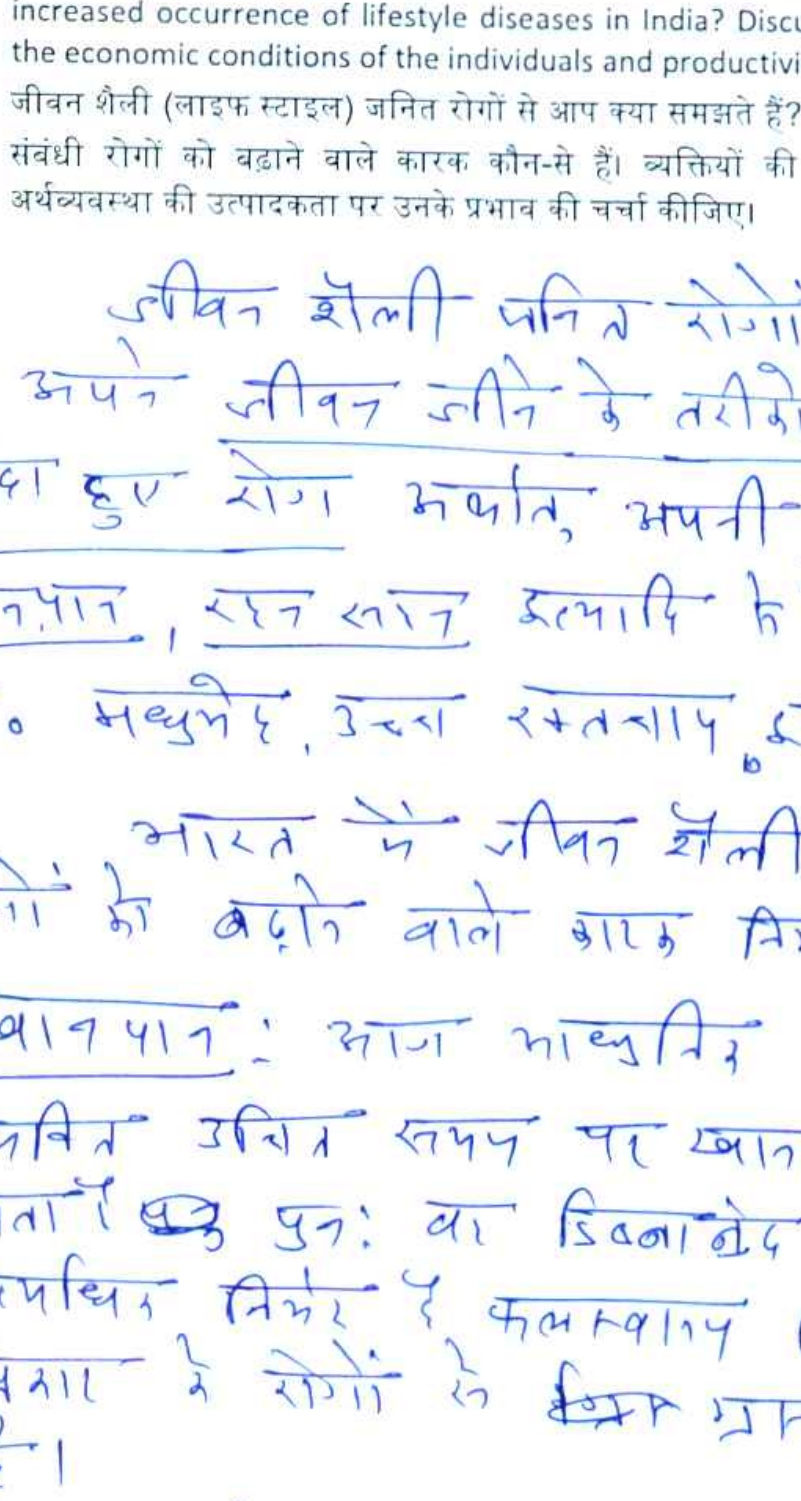 increased occurrence of lifestyle diseases in India? Discu
the economic conditions of the individuals and productivi
जीवन शैली (लाइफ स्टाइल) जनित रोगों से आप क्या समझते हैं?
संबंधी रोगों को बढ़ाने वाले कारक कौन-से हैं। व्यक्तियों की
अर्थव्यवस्था की उत्पादकता पर उनके प्रभाव की चर्चा कीजिए।
जीवन शैली जनित रोगों
अपने जीवन जीने के तरीको
दा हुए रोग अर्थात् अपनी
नपान, रहन सहन इत्यादि के
मधुमेह, उच्च रक्तचाप,
भारत में जीवन शैली
गों को बढ़ाने वाले कारक
खानपान : आज आधुनिक
उचित समय पर खान
पुनः वह डिब्बाबंद
निर्भर है फलस्वरूप
के रोगों से
है।